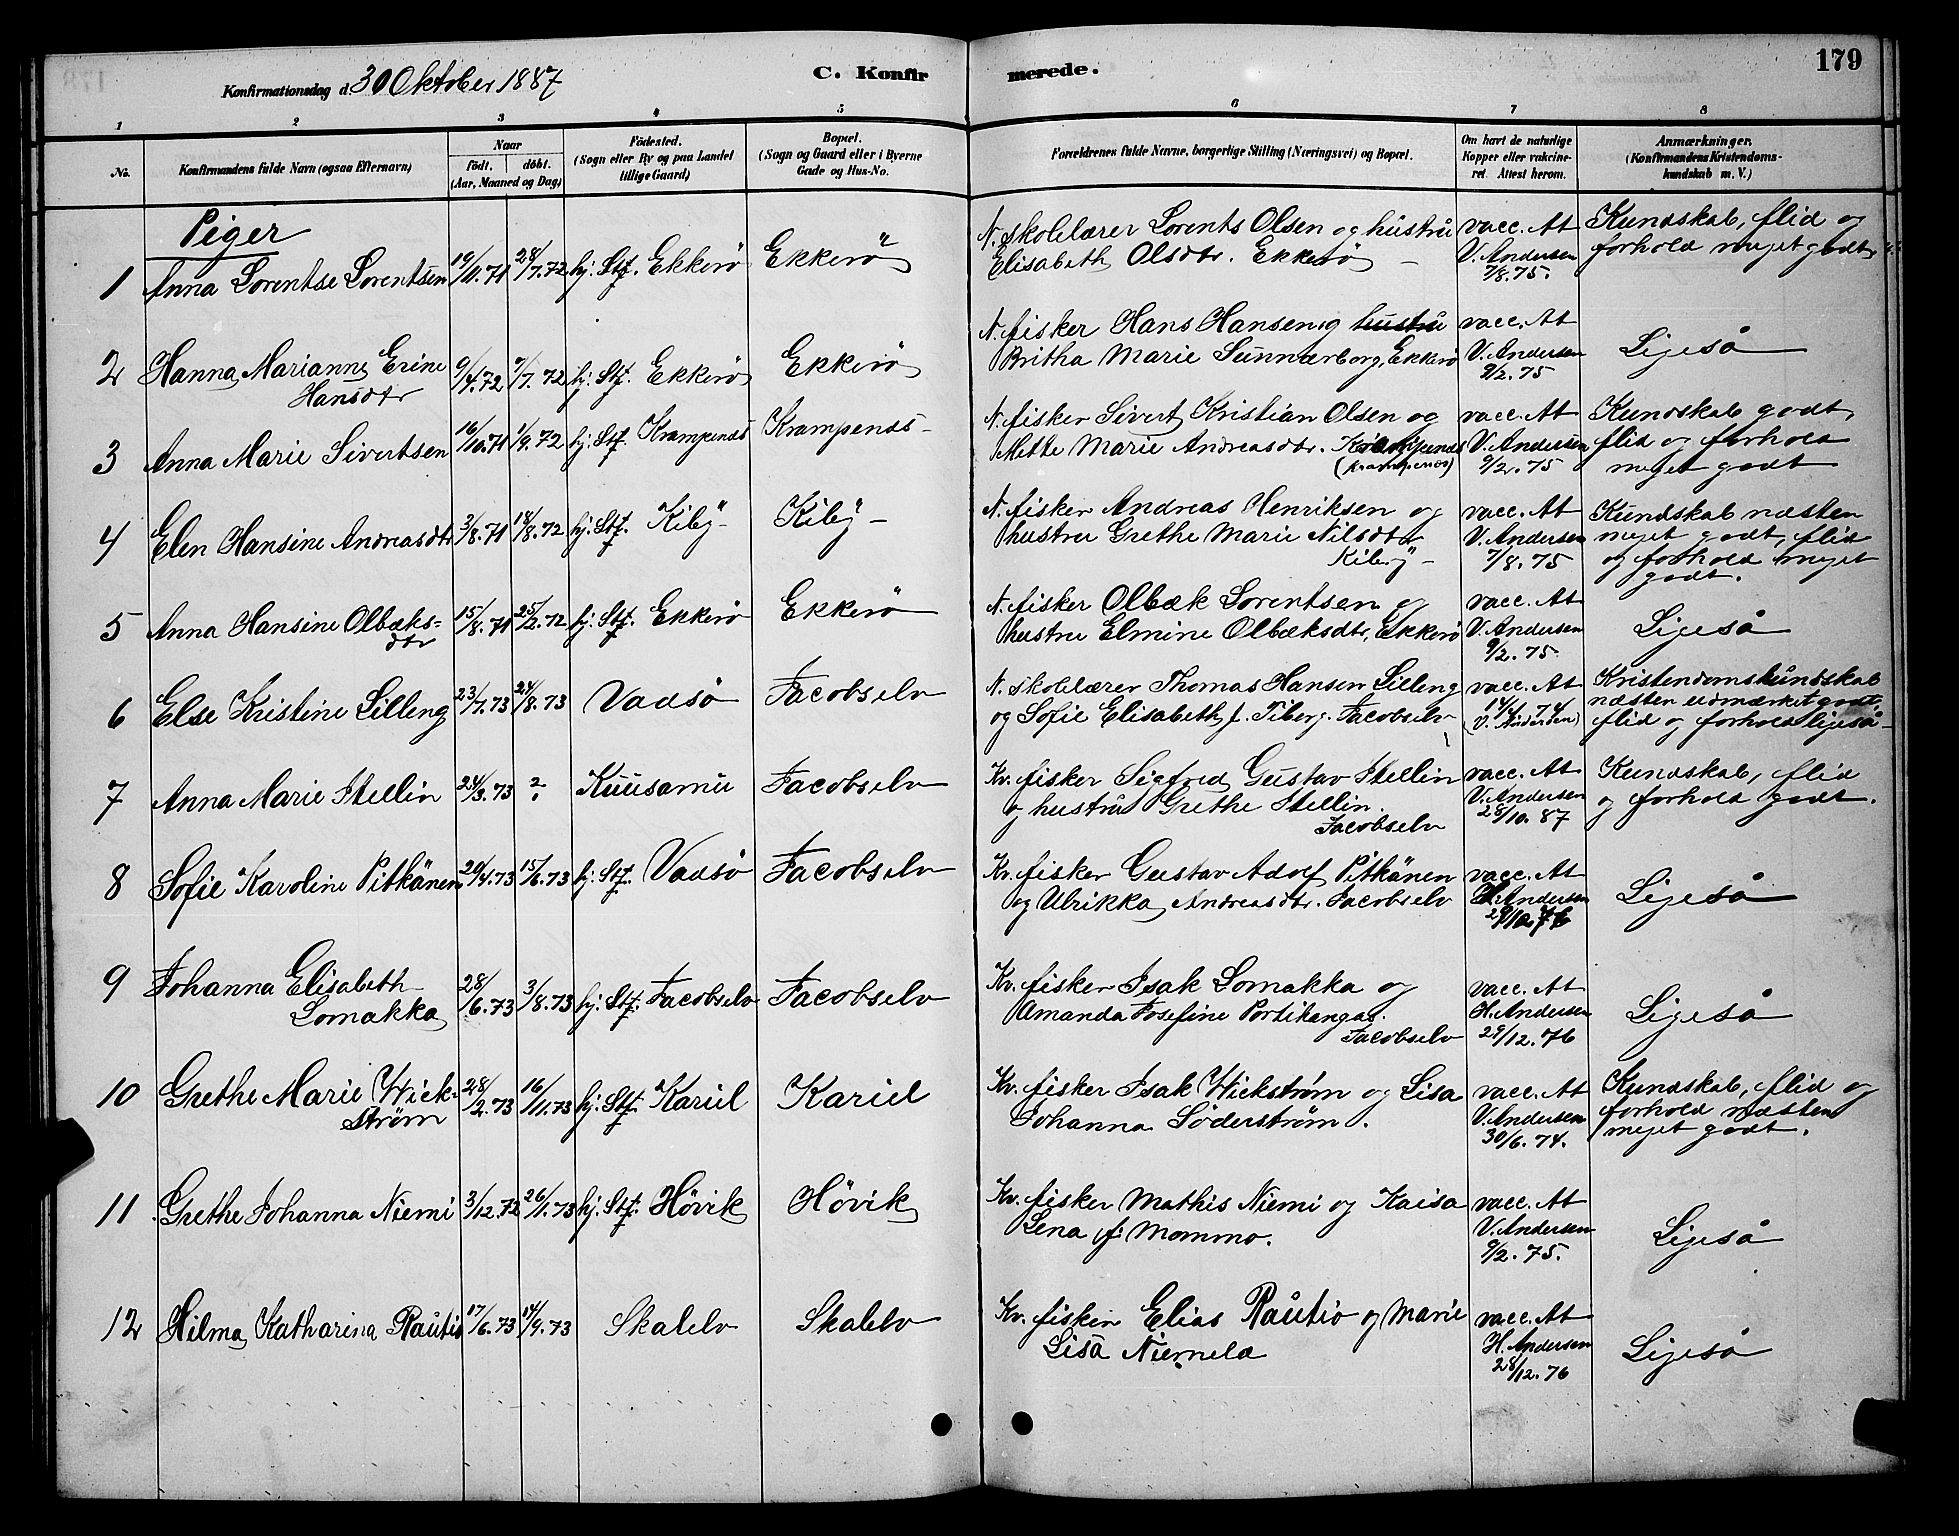 179
C. Konfirmerede.
Konfirmationsdag d. 30 Oktober 1887
1 2 3 4 5 6 7 8
No.
Konfirmandens fulde Navn (ogsaa Efternavn)
Naar
födt. döbt.
(Aar, Maaned og Dag)
Födested.
(Sogn eller By og paa Landet
tillige Gaard)
Bopæl.
(Sogn og Gaard eller i Byerne
Gade og Hus-No.
Forældrenes fulde Navne, borgerlige Stilling (Næringsvei) og Bopæl.
Om havt de naturlige
Kopper eller vakcine-
ret. Attest herom.
Anmærkninger.
(Konfirmandens Kristendoms-
kundskab m. V.)
Piger
1 Anna Lorentse Lorentsen 19/11.71 28/7.72 hj. Stf. Ekkerö Ekkerö
N. skolelærer Lorents Olsen og hustru
Elisabeth Olsdtr. Ekkerö
vacc. At
V. Andersen
7/8.75.
Kundskab, flid og
forhold meget godt
2 Hanna Marianne Erine
Hansdtr
9/4.72 7/7.72 hj. Stf. Ekkerö Ekkerö
N. fisker Hans Hansen og hustru
Britha Marie Sunnærborg, Ekkerö
vacc. At
V. Andersen
9/2.75
Ligeså
3 Anna Marie Sivertsen 16/10.71 1/9.72 hj. Stf. Krampenæs Krampenæs
N. fisker Sivert Kristian Olsen og
Mette Marie Andreasdtr. Krampenæs
(Krampenæs)
vacc. At
V. Andersen
9/2.75
Kundskab godt,
flid og forhold
meget godt
4 Elen Hansine Andreasdtr 3/8.71 18/8.72 hj. Stf. Kibÿ Kibÿ
N. fisker Andreas Henriksen og
hustru Grethe Marie Nilsdtr
Kibÿ
vacc. At
V. Andersen
7/8.75
Kundskab næsten
meget godt, flid
og forhold meget
godt.
5 Anna Hansine Olbæks-
dtr
15/8.71 25/2.72 hj. Stf. Ekkerö Ekkerö
N. fisker Olbæk Lorentsen og
hustru Elmine Olbæksdtr, Ekkerö
vacc. At
V. Andersen
9/2.75
Ligeså
6 Else Kristine Lilleng 23/7.73 24/8.73 Vadsö Jacobselv
N. skolelærer Thomas Hansen Lilleng
og Sofie Elisabeth f. Tiberg. Jacobselv
vacc. At
14/4.74
(V. Andersen)
Kristendomskundskab
næsten udmærket godt,
flid og forhold ligeså
7 Anna Marie Stellin 24/3.73 ? Kuusamu Jacobselv
Kv. fisker Sigfred Gustav Stellin
og hustru Grethe Stellin.
Jacobselv
vacc. At
V. Andersen
28/10.87
Kundskab, flid
og forhold godt.
8 Sofie Karoline Pitkänen 20/4.73 15/6.73 hj. Stf. Vadsö Jacobselv
Kv. fisker Gustav Adolf Pitkänen
og Ulrikka Andreasdtr. Jacobselv
vacc. At
H. Andersen
Ligeså
9 Johanna Elisabeth
Lomakka
28/6.73 3/8.73 hj. Stf. Jacobselv Jacobselv
Kv. fisker Isak Lomakka og
Amanda Josefine Portikangas.
Jacobselv
vacc. At
H. Andersen
29/12.76
Ligeså
10 Grethe Marie Wick-
strøm
28/2.73 16/11.73 hj. Stf. Kariel Kariel
Kv. fisker Isak Wickstrøm og Lisa
Johanna Söderstrøm.
vacc. At
V. Andersen
30/6.74.
Kundskab, flid og
forhold næsten
meget godt.
11 Grethe Johanna Niemi 3/12.72 26/1.73 hj. Stf. Hövik Hövik
Kv. fisker Mathis Niemi og Kaisa
Lena f. Mommo.
vacc. At
V. Andersen
9/2.75.
Ligeså
12 Hilma Katharina Rautio 17/6.73 14/9.73 Skalelv Skalelv
Kv. fisker Elias Rautio og Marie
Lisa Niemelä
vacc. At
H. Andersen
28/12.76
Ligeså